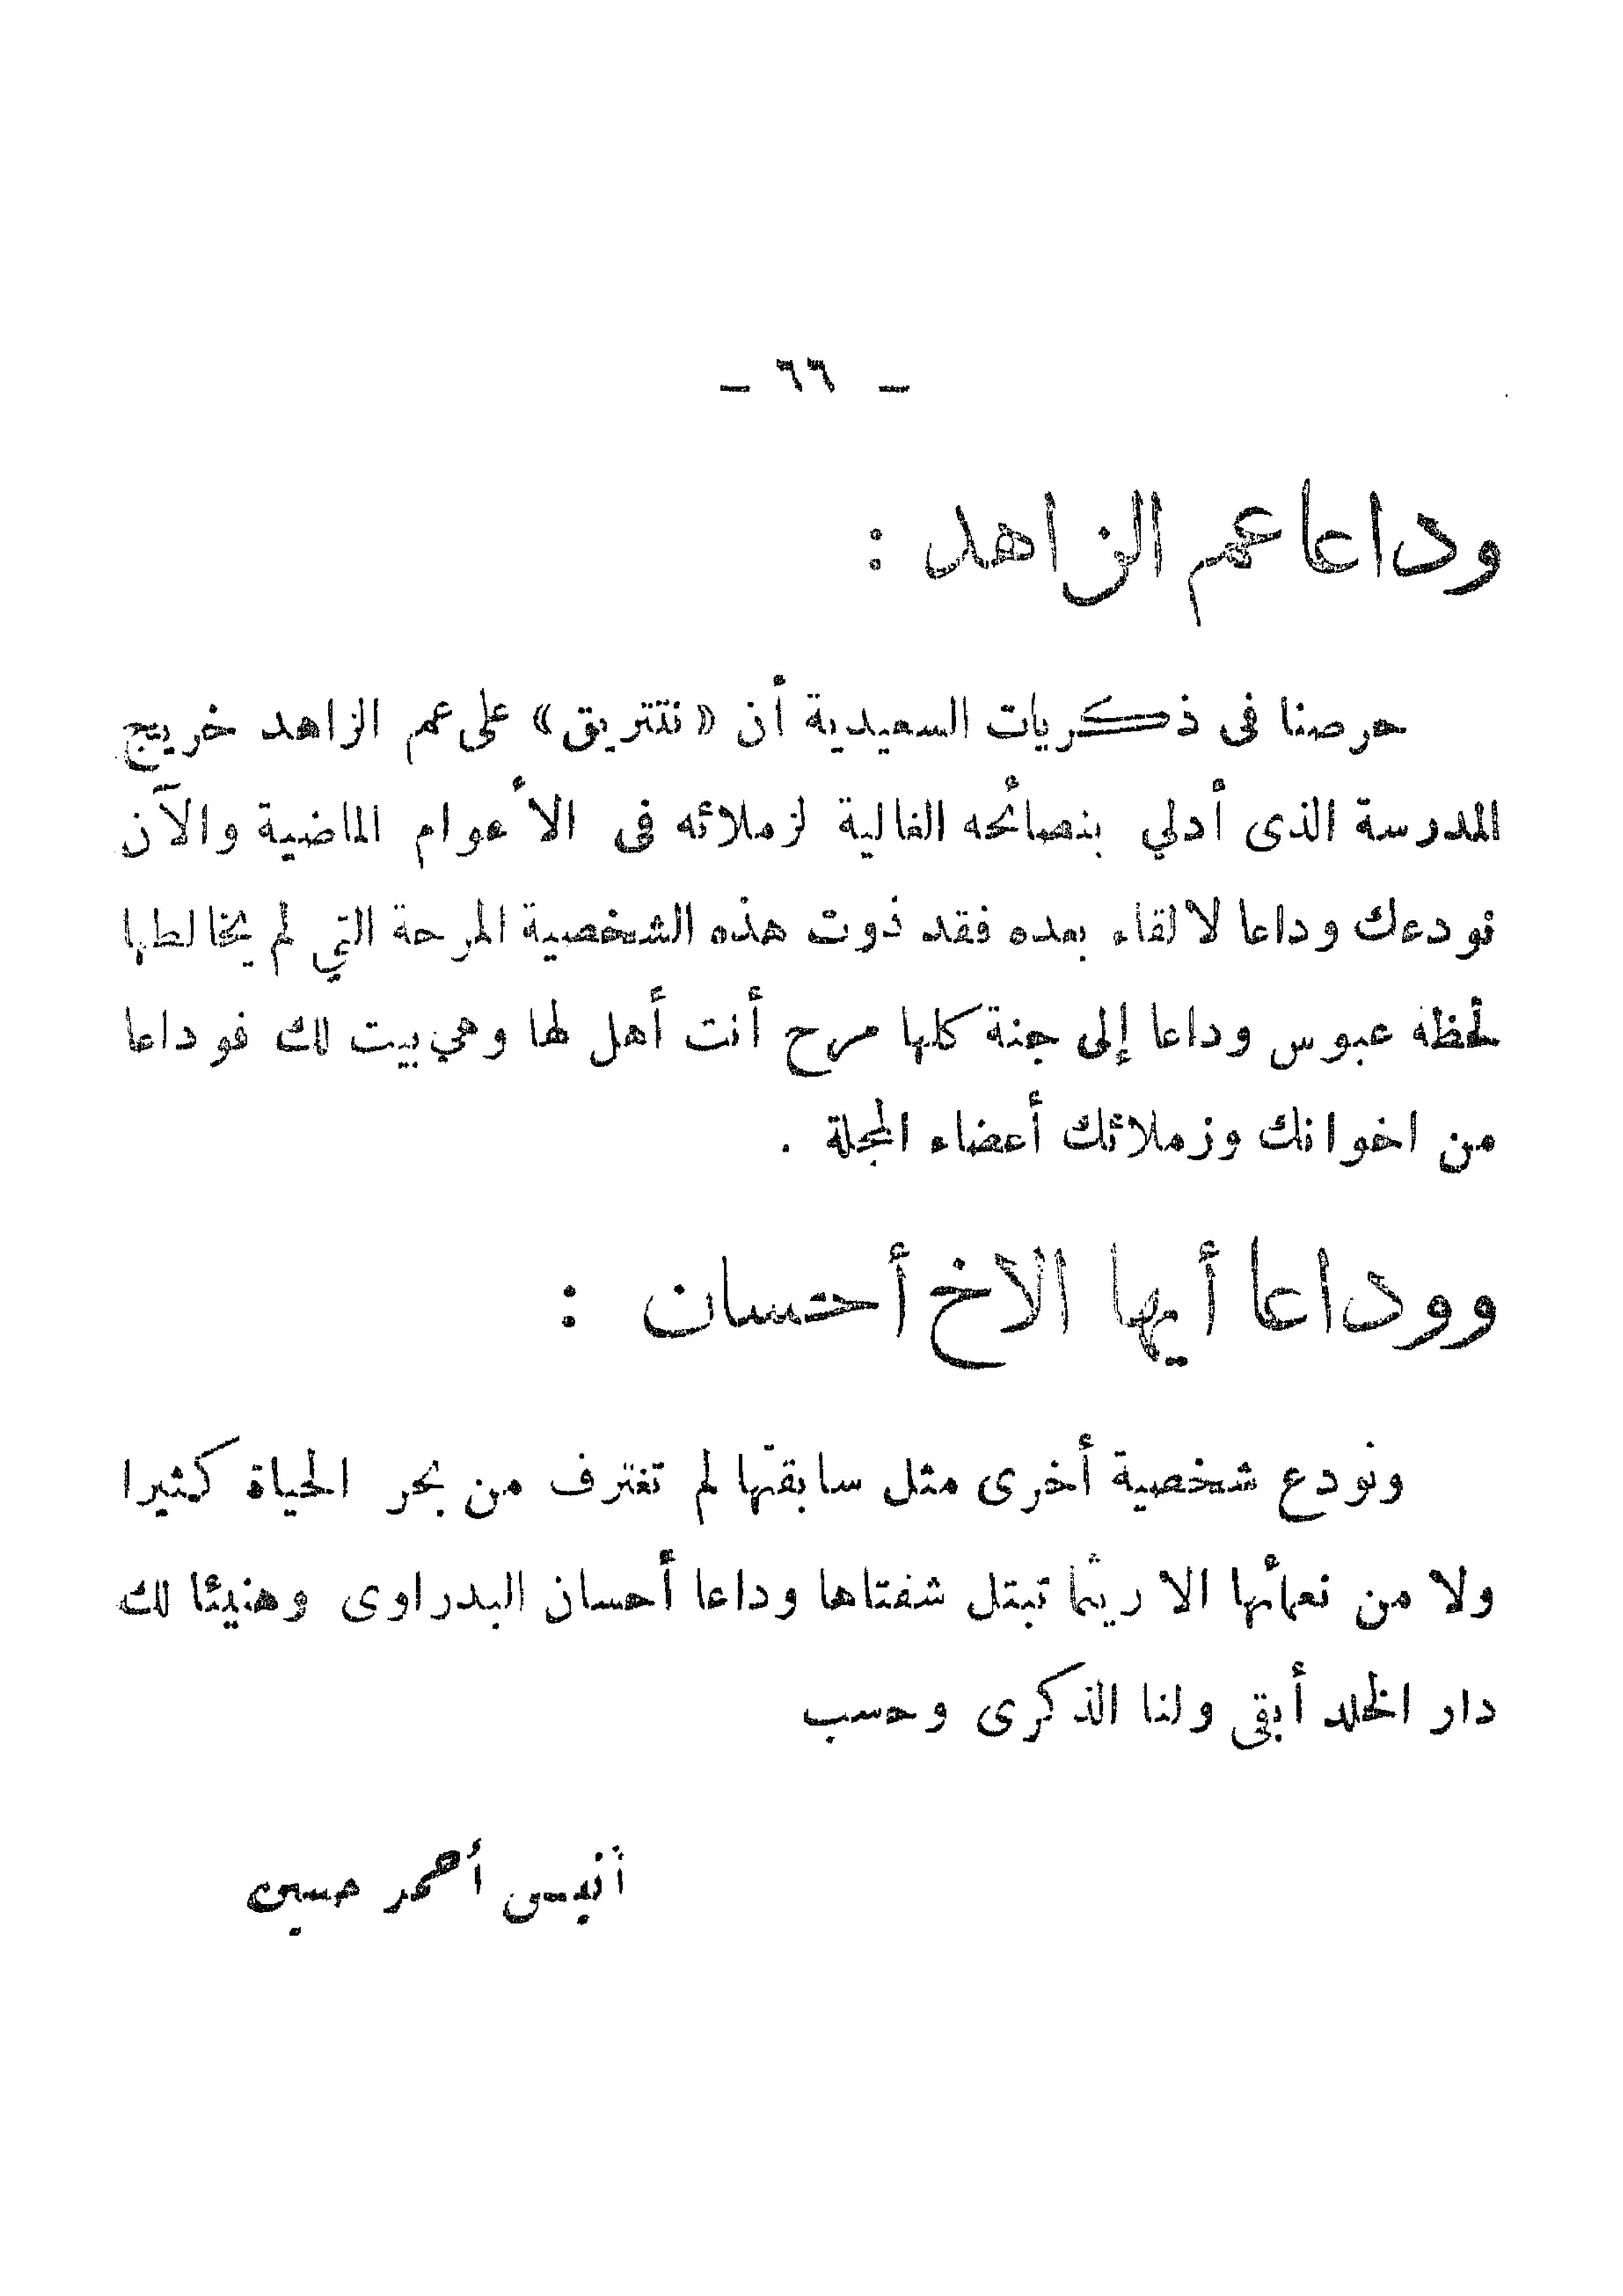 — ٦٦ —
وداعا عم الزاهد :
حرصنا فى ذكريات السعيدية أن « نتتريق » على عم الزاهد خريج
المدرسة الذى أدلي بنصائحه الغالية لزملائه فى الأعوام الماضية والآن
نودعك وداعا لا لقاء بعده فقد ذوت هذه الشخصية المرحة التي لم يخالطها
لحظة عبوس وداعا إلى جنة كلها مرح أنت أهل لها وهي بيت لك فوداعا
من اخوانك وزملائك أعضاء المجلة .
ووداعا أيها الاخ أحسان :
ونودع شخصية أخرى مثل سابقتها لم تغترف من بحر الحياة كثيرا
ولا من نعمائها الا ريثما تبتل شفتاها وداعا أحسان البدراوى وهنيئا لك
دار الخلد أبقى ولنا الذكرى وحسب
أنيس أحمد حسين